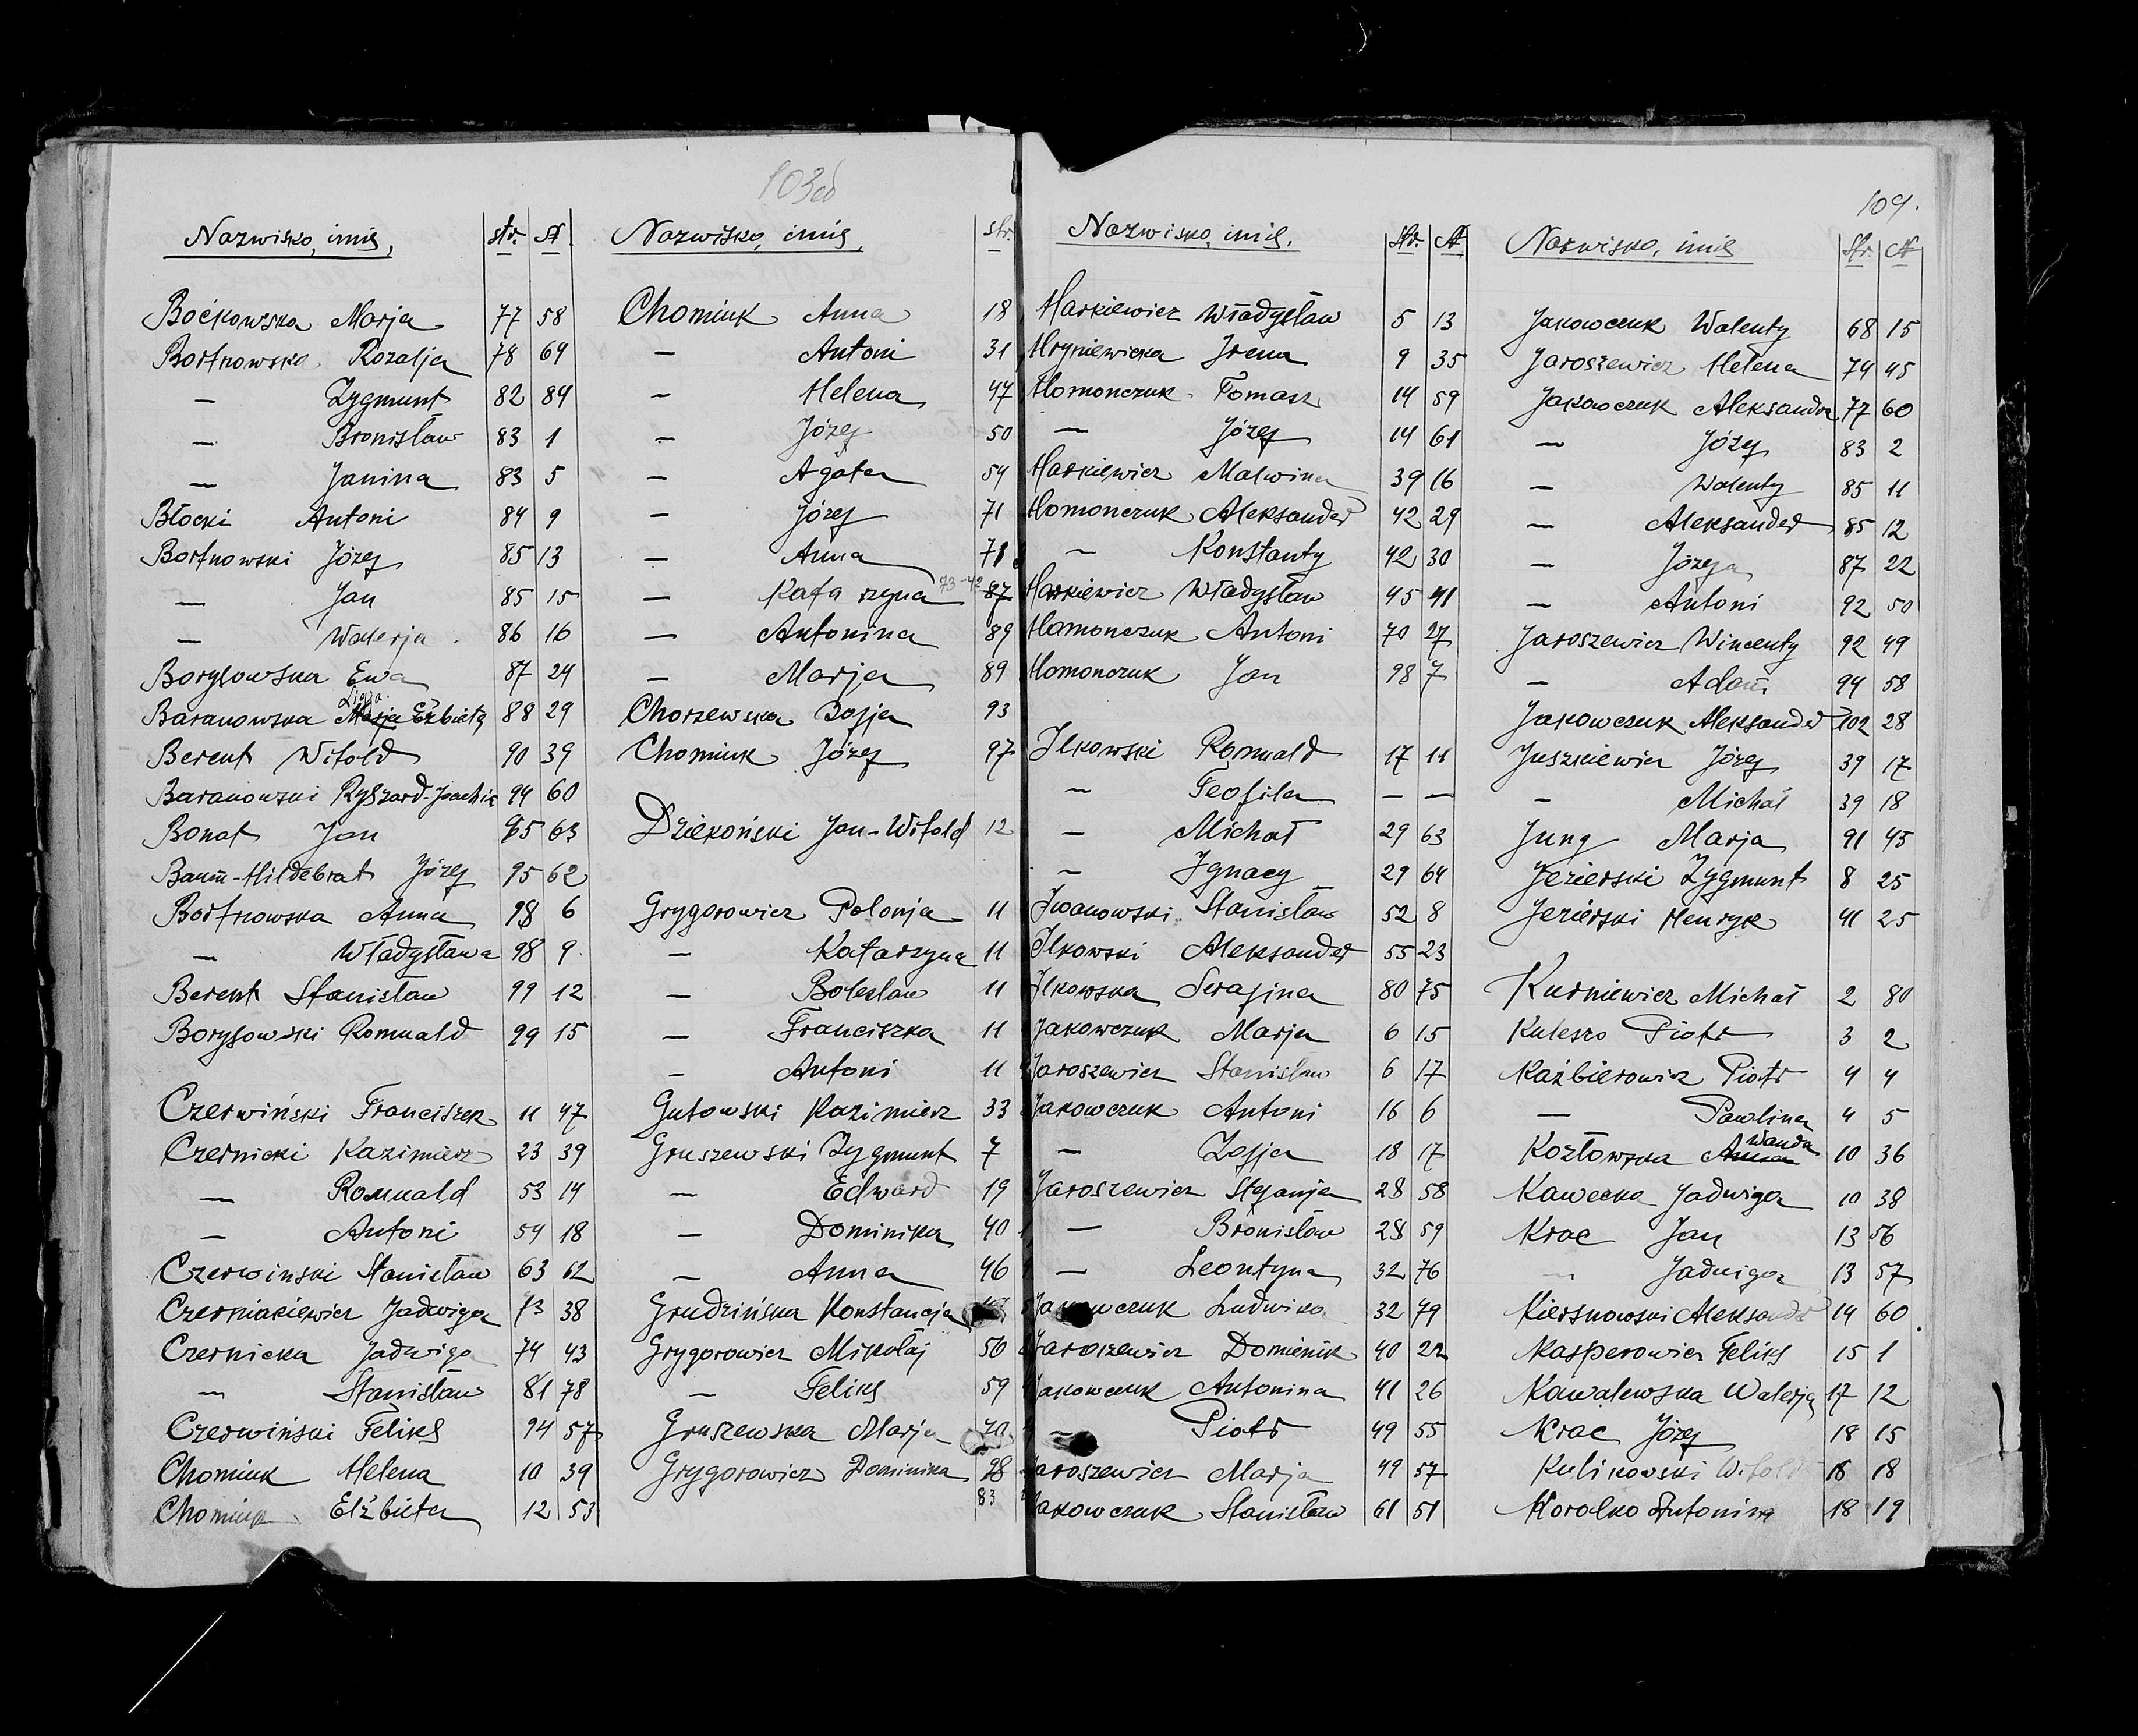 103
109.
Nazwisko, imię, str. №
Boćkowska Marja 77 58
Bortnowska Rozalja 78 64
— Zygmunt 82 84
— Bronisław 83 1
— Janina 83 5
Błocki Antoni 84 9
Bortnowski Józef 85 13
— Jan 85 15
— Walerja 86 16
Borysowska Ewa 87 24
Ligja
Baranowska Marja Elżbieta 88 29
Berent Witold 90 39
Baranowski Ryszard-Joachim 94 60
Bonat Jan 95 63
Baum-Hildebrat Józef 95 62
Bortnowska Anna 98 6
— Władysława 98 9
Berent Stanisław 99 12
Borysowski Romuald 99 15
Czerwiński Franciszek 11 47
Czernicki Kazimierz 23 39
— Romuald 53 14
— Antoni 54 18
Czerwinski Stanisław 63 62
Czerniakiewicz Jadwiga 73 38
Czernicka Jadwiga 74 43
— Stanisław 81 78
Czerwiński Feliks 94 57
Chomiuk Helena 10 39
Chomiuk Elżbieta 12 53
Nazwisko, imię, str.
Chomiuk Anna 18
— Antoni 31
— Helena 47
— Józef 50
— Agata 54
— Józef 71
— Anna 78
73-42
— Katarzyna 87
— Antonina 89
— Marja 89
Chorzewska Zofja 93
Chomiuk Józef 97
Dziekoński Jan-Witold 12
Grygorowicz Polonja 11
— Katarzyna 11
— Bolesław 11
— Franciszka 11
— Antoni 11
Gutowski Kazimierz 33
Gruszewski Zygmunt 7
— Edward 19
— Dominika 40
— Anna 46
Grudzińska Konstancja
Grygorowicz Mikołaj 56
— Feliks 59
Gruszewska Marja 70
Grygorowicz Dominika 98
83
Nazwisko, imię. Str. №
Harkiewicz Władysław 5 13
Hryniewicka Irena 9 35
Homonczuk Tomasz 14 59
— Józef 14 61
Harkiewicz Malwina 39 16
Homonczuk Aleksander 42 29
— Konstanty 42 30
Harkiewicz Władysław 45 41
Homonczuk Antoni 70 27
Homonczuk Jan 98 7
Ilkowski Romuald 17 11
— Teofila — —
— Michał 29 63
— Ignacy 29 64
Iwanowski Stanisław 52 8
Ilkowski Aleksander 55 23
Ilkowska Serafina 80 75
Jakowczuk Marja 6 15
Jaroszewicz Stanisław 6 17
Jakowczuk Antoni 16 6
— Zofja 18 17
Jaroszewicz Stefanja 28 58
— Bronisław 28 59
— Leontyna 32 76
Jakowczuk Ludwika 32 79
Jaroszewicz Dominik 40 22
Jakowczuk Antonina 41 26
— Piotr 49 55
Jaroszewicz Marja 49 57
Jakowczuk Stanisław 61 51
Nazwisko, imię Str. №
Jakowczuk Walenty 68 15
Jaroszewicz Helena 74 45
Jakowczuk Aleksandra 77 60
— Józef 83 2
— Walenty 85 11
— Aleksander 85 12
— Józefa 87 22
— Antoni 92 50
Jaroszewicz Wincenty 92 49
— Adam 94 58
Jakowczuk Aleksander 102 28
Juszkiewicz Józef 39 17
— Michał 39 18
Jung Marja 91 45
Jezierski Zygmunt 8 25
Jezierski Henryk 41 25
Kurniewicz Michał 2 80
Kuleszo Piotr 3 2
Kaźbierowicz Piotr 4 4
— Pawlina 4 5
Wanda
Kozłowska Anna 10 36
Kawecka Jadwiga 10 38
Krac Jan 13 56
— Jadwiga 13 57
Kiersnowski Aleksander 14 60
Kasperowicz Feliks 15 1
Kowalewska Walerja 17 12
Krac Józef 18 15
Kulikowski Witold 18 18
Koralko Antonina 18 19